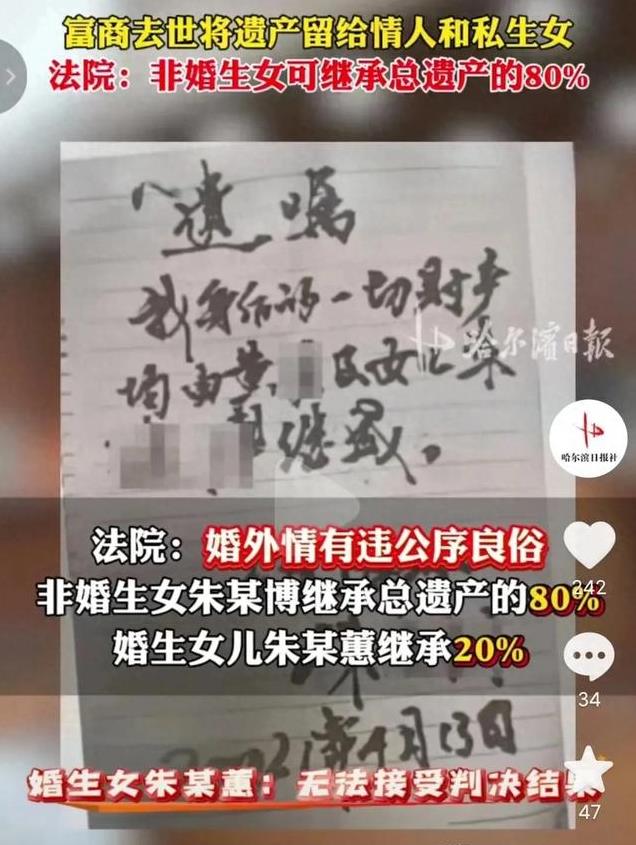 富商去世将遗产留给情人和私生女
法院：非婚生女可继承总遗产的80%
遗嘱
我身后的一切财产
均由黄
及女儿朱
继承。
哈尔滨日报
哈尔滨日报社
法院：婚外情有违公序良俗
非婚生女朱某博继承总遗产的80%
婚生女儿朱某蕙继承20%
242
34
4月13日
婚生女朱某蕙：无法接受判决结果
47